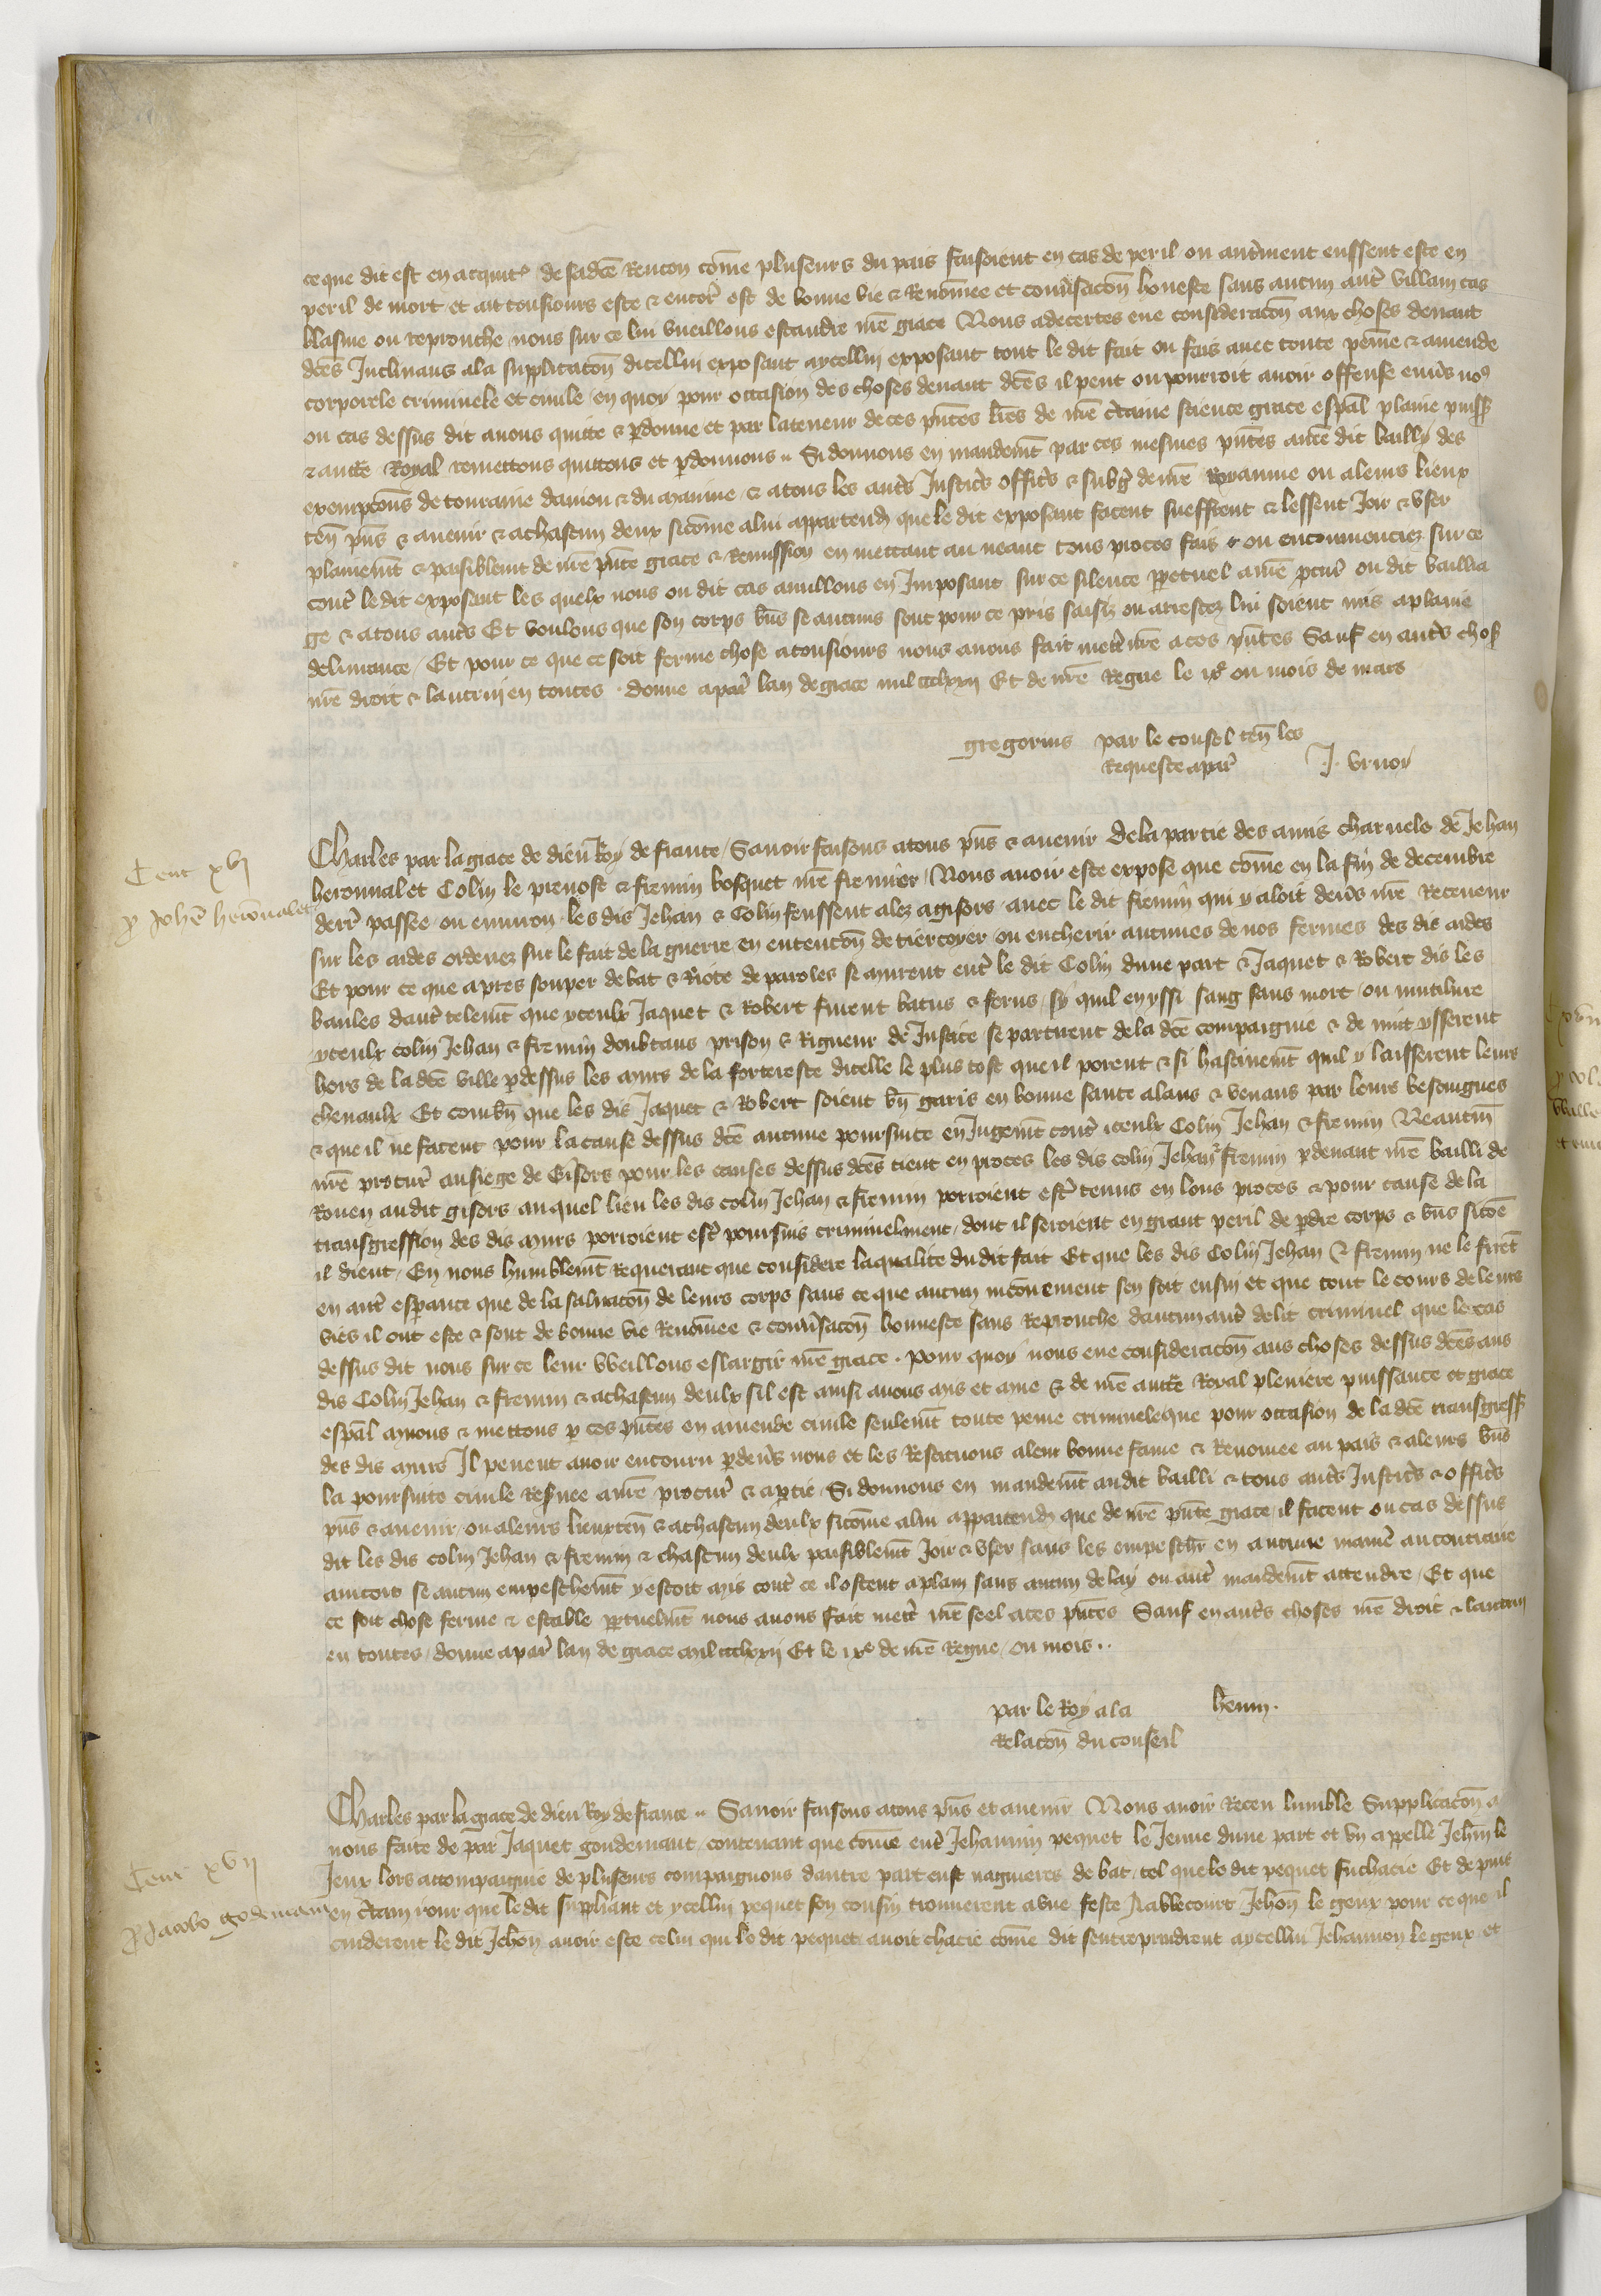 ce que dit est en acquit de sadcē Rencon cōme pluseurs du pais faisoient en cas de peril ou autrement eussent este en
peril de mort et ait tousiours este & encor est de bonne vie & Renōmee et conūsacōn honeste sans aucun autr villain cas
blasme ou reprouche nous sur ce lui vueillons estandre nrē grace Nous adecertes eue consideracōn aux choses deuant
dcēs Inclinans a la supplicacōn dicellui exposant aycellui exposant tout le dit fait ou fais auec toute peine & amende
corporele criminele et ciuile en quoy pour occasion des choses deuant dcēs il peut ou pourroit auoir offense enūs nos
ou cas dessus dit auons quitte & pdonne et par la teneur de ces pn̄tes lrēs de nrē ctaine science grace espāl plaine puiss
& auctē Royal remettons quittons et pdonnons .. Si donnons en mandemt par ces mesmes pn̄tes a nrē dit bailly des
exempcōns de touraine danjou & du maine & a tous les autrs Justicrs officrs & subgz de nrē Royaume ou a leurs lieux
ten̄ pn̄s & auenir & a chascun deux si cōme a lui appartendra que le dit exposant facent sueffrent & lessent Joir & vser
plainemt & paisiblemt de nrē pn̄te grace & Remission en mettant au neant tous proces fais & ou encommenciez sur ce
contr le dit exposant les quelx nous ou dit cas anullons en Imposant sur ce silence ppetuel a nrē pcur ou dit bailliа
ge & a tous autrs Et voulons que son corps biens se aucuns sont pour ce pris saisiz ou arrestez lui soient mis a plaine
deliurance / Et pour ce que ce soit ferme chose a tousiours nous auons fait mettr nrē a ces pn̄tes Sauf en autrs chos
nrē droit & lautrui en toutes . donne a par lan de grace mil ccclxxij Et de nrē Regne le ixe ou mois de mars
gregorius par le conseil ten̄ les
Requeste a par J. Vrnoy
Cent xvj
p Johē herōualet
Charles par la grace de dieu Roy de france / Sauoir faisons a tous pn̄s & auenir De la partie des amis charnels de Jehan
heronual et Colin le preuost & firmin bosquet nrē firmier / Nous auoir este expose que cōme en la fin de decembre
derr passee ou enuiron les dis Jehan & Colin feussent alez a gisors auec le dit firmin qui y aloit deūs nrē Receueur
sur les aides ordenez sur le fait de la guerre en entencōn de tiercoyer ou encherir aucunes de nos fermes des dis aides
Et pour ce que apres souper debat & Riote de paroles se murent entr le dit Colin dune part & Jaquet & Robert dis les
baules dautr telemt que yceulx Jaquet & Robert furent batus & ferus sy quil en yssi sang sans mort ou mutilure
yceulx colin Jehan & firmin doubtans prison & Rigueur de Justice se partirent de la dcē compaignie & de nuit ysserent
hors de la dcē ville pdessus les murs de la forteresce dicelle le plus tost que il porent & si hastiuemt quil y laisserent leurs
cheuaulx Et combn̄ que les dis Jaquet & Robert soient bn̄ garis en bonne sante alans & venans par leurs besoingnes
& que il ne facent pour la cause dessus dcē aucune poursuite en Jugemt contr iceulx Colin Jehan & firmin Neantm
nrē procur au siege de Gisors pour les causes dessus dcēs tient en proces les dis colin Jehan & firmin pdeuant nrē bailli de
Rouen au dit gisors au quel lieu les dis colin Jehan & firmin porroient estr tenus en lons proces & pour cause de la
transgression des dis murs porroient estr poursuis criminelment dont il seroient en grant peril de pdre corps & biens si cōe
il dient / En nous humblemt Requerant que considere la qualite du dit fait Et que les dis Colin Jehan & firmin ne le firēt
en autr espance que de la saluacōn de leurs corps sans ce que aucun inconuenient sen soit ensui et que tout le cours de leurs
vies il ont este & sont de bonne vie Renōmee & conūsacōn honneste sans Reprouche daucun autr delit criminel que le cas
dessus dit nous sur ce leur vueillons eslargir nrē grace . pour quoy nous eue consideracōn aus choses dessus dcēs aus
dis Colin Jehan & firmin & a chascun deulx sil est ainsi auons mis et mue & de nrē auctē Royal pleniere puissance et grace
espāl muons & mettons p ces pn̄tes en amende ciuile seulemt toute peine criminele que pour occasion de la dcē transgress
des dis murs Il peuent auoir encouru pdeūs nous et les Restituons a leur bonne fame & Renomee au pais & a leurs bn̄s
la poursuite ciuile Resuee a nrē procur & a ptie Si donnons en mandemt au dit bailli & tous autrs Justicrs & officrs
pn̄s & auenir ou a leurs lieuxten̄ & a chascun deulx si cōme a lui appartendra que de nrē pn̄te grace il facent ou cas dessus
dit les dis colin Jehan & firmin & chascun deulx paisiblemt Joir & vser sans les empeschr en aucune manie au contraire
aincois se aucun empeschemt y estoit mis contr ce il ostent a plain sans aucun delay ou autr mandemt attendre / Et que
ce soit chose ferme & estable ppetuelmt nous auons fait mettr nrē seel a ces pn̄tes Sauf en autrs choses nrē droit & lautrui
en toutes / donne a par lan de grace mil ccclxxij Et le ixe de nrē Regne / ou mois ..
par le Roy a la henin .
Relacōn du conseil
Cent xvij
p Jacobo godemant
Charles par la grace de dieu Roy de france .. Sauoir faisons a tous pn̄s et auenir Nous auoir Receu lumble Supplicacōn a
nous faite de par Jaquet goudemant contenant que cōme entr Jehannin pequet le Jeune dune part et vn appelle Jehn̄ le
Jeux lors accompaignie de pluseurs compaignons dautre part eust nagueres debat tel que le dit pequet fu chacie Et depuis
en ctain iour que le dit suppliant et ycellui pequet son cousin trouuerent a vne feste Jehōn le geux pour ce que il
cuiderent le dit Jehōn auoir este celui qui le dit pequet auoit chacie cōme dit sentreprindrent aycellui Jehannon le geux et